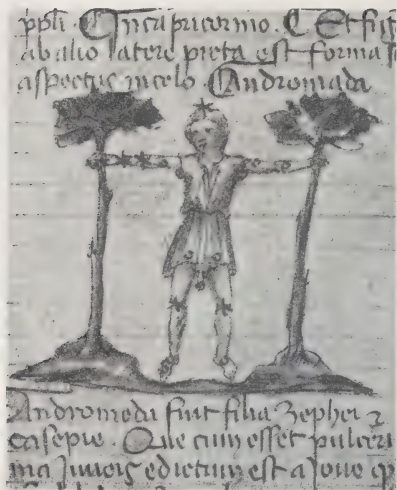 ppli. Incapricorno. Et fig
ab alio latere picta est forma s
aspectus in celo. Andromada
Andromeda fuit filia Zephei ⁊
casepie. Que cum esset pulcerri
ma Juuenis edictum est a Joue q